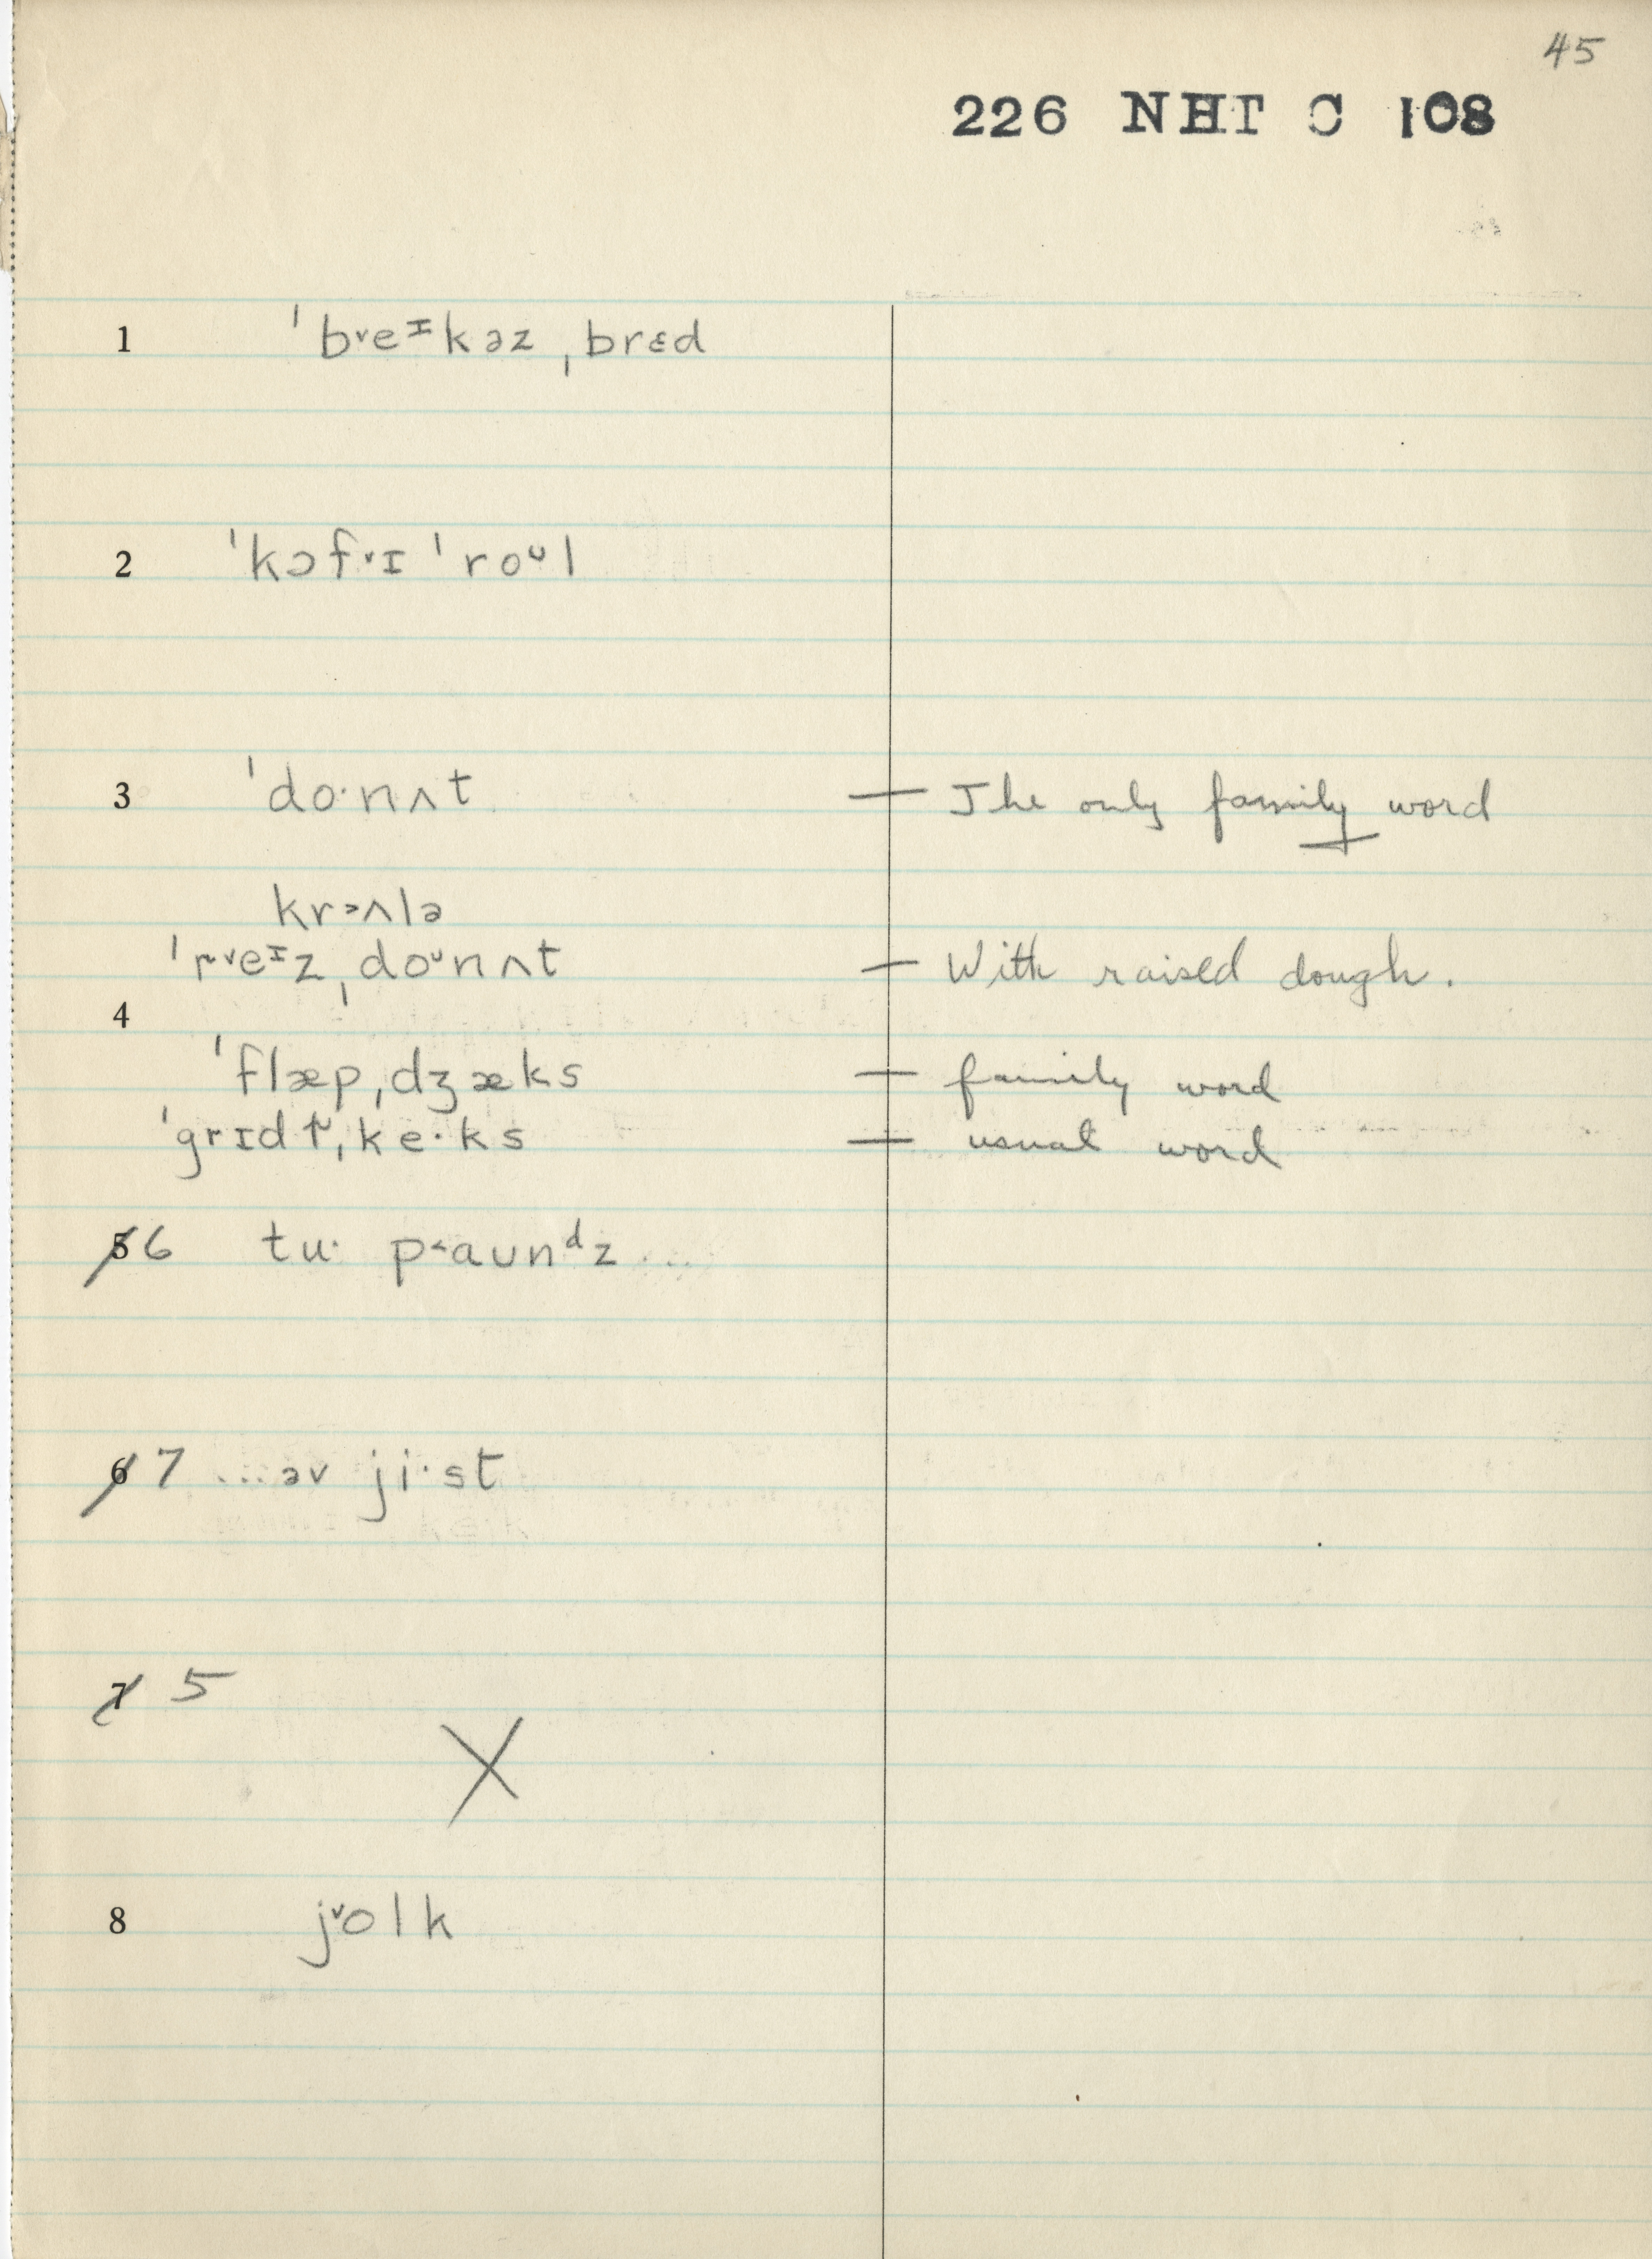 45
226 NHT C 108
1 ˈb˅eᶦkəz ˌbrɛd
2 ˈkɔf˅ɪ ˈroᶷl
3 ˈdo·nʌt — The only family word
kr˃ʌlə
ˈr˅eᶦzˌdoᶷnʌt — With raised dough.
4
ˈflæpˌdʒæks — family word
ˈgrɪdɫˌke·ks — usual word
5 6 tu· p˂aunᵈz ...
6 7 ...əv ji·st
7 5
X
8 j˅olk